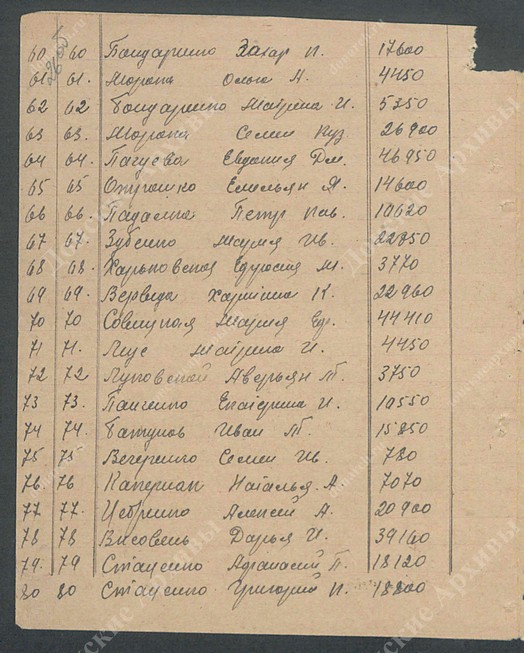 60 60 Бондаренко Захар И. 17600
61 61. Морока Ольга А. 4450
62 62 Бондаренко Марина И. 5350
63 63. Морока Семен Куз 26900
64 64. Евдокия Дм. 46950
65 65 Емельян Я. 14600
66 66. Падалка Петр Пав. 10620
67 67. Зубенко Мария Ив. 22850
68 68. Харьковская М. 3770
69 69. Вервейда К. 22960
70 70 Мария Ер. 44410
71 71. Марина И. 4450
72 72 Луковской Аверьян Т. 3750
73 73. Панченко Екатерина И. 10550
74 74. Батулов Иван Т. 15850
75 75 Вечеренко Семен Ив. 780
76. 76 Каперман Наталья. А 7070
77 77. Цебренко Алексей А. 20900
78 78 Висовень Дарья И. 39160
79. 79 Стаценко Афанасий Т. 18120
80 80 Стаценко Григорий И. 18800